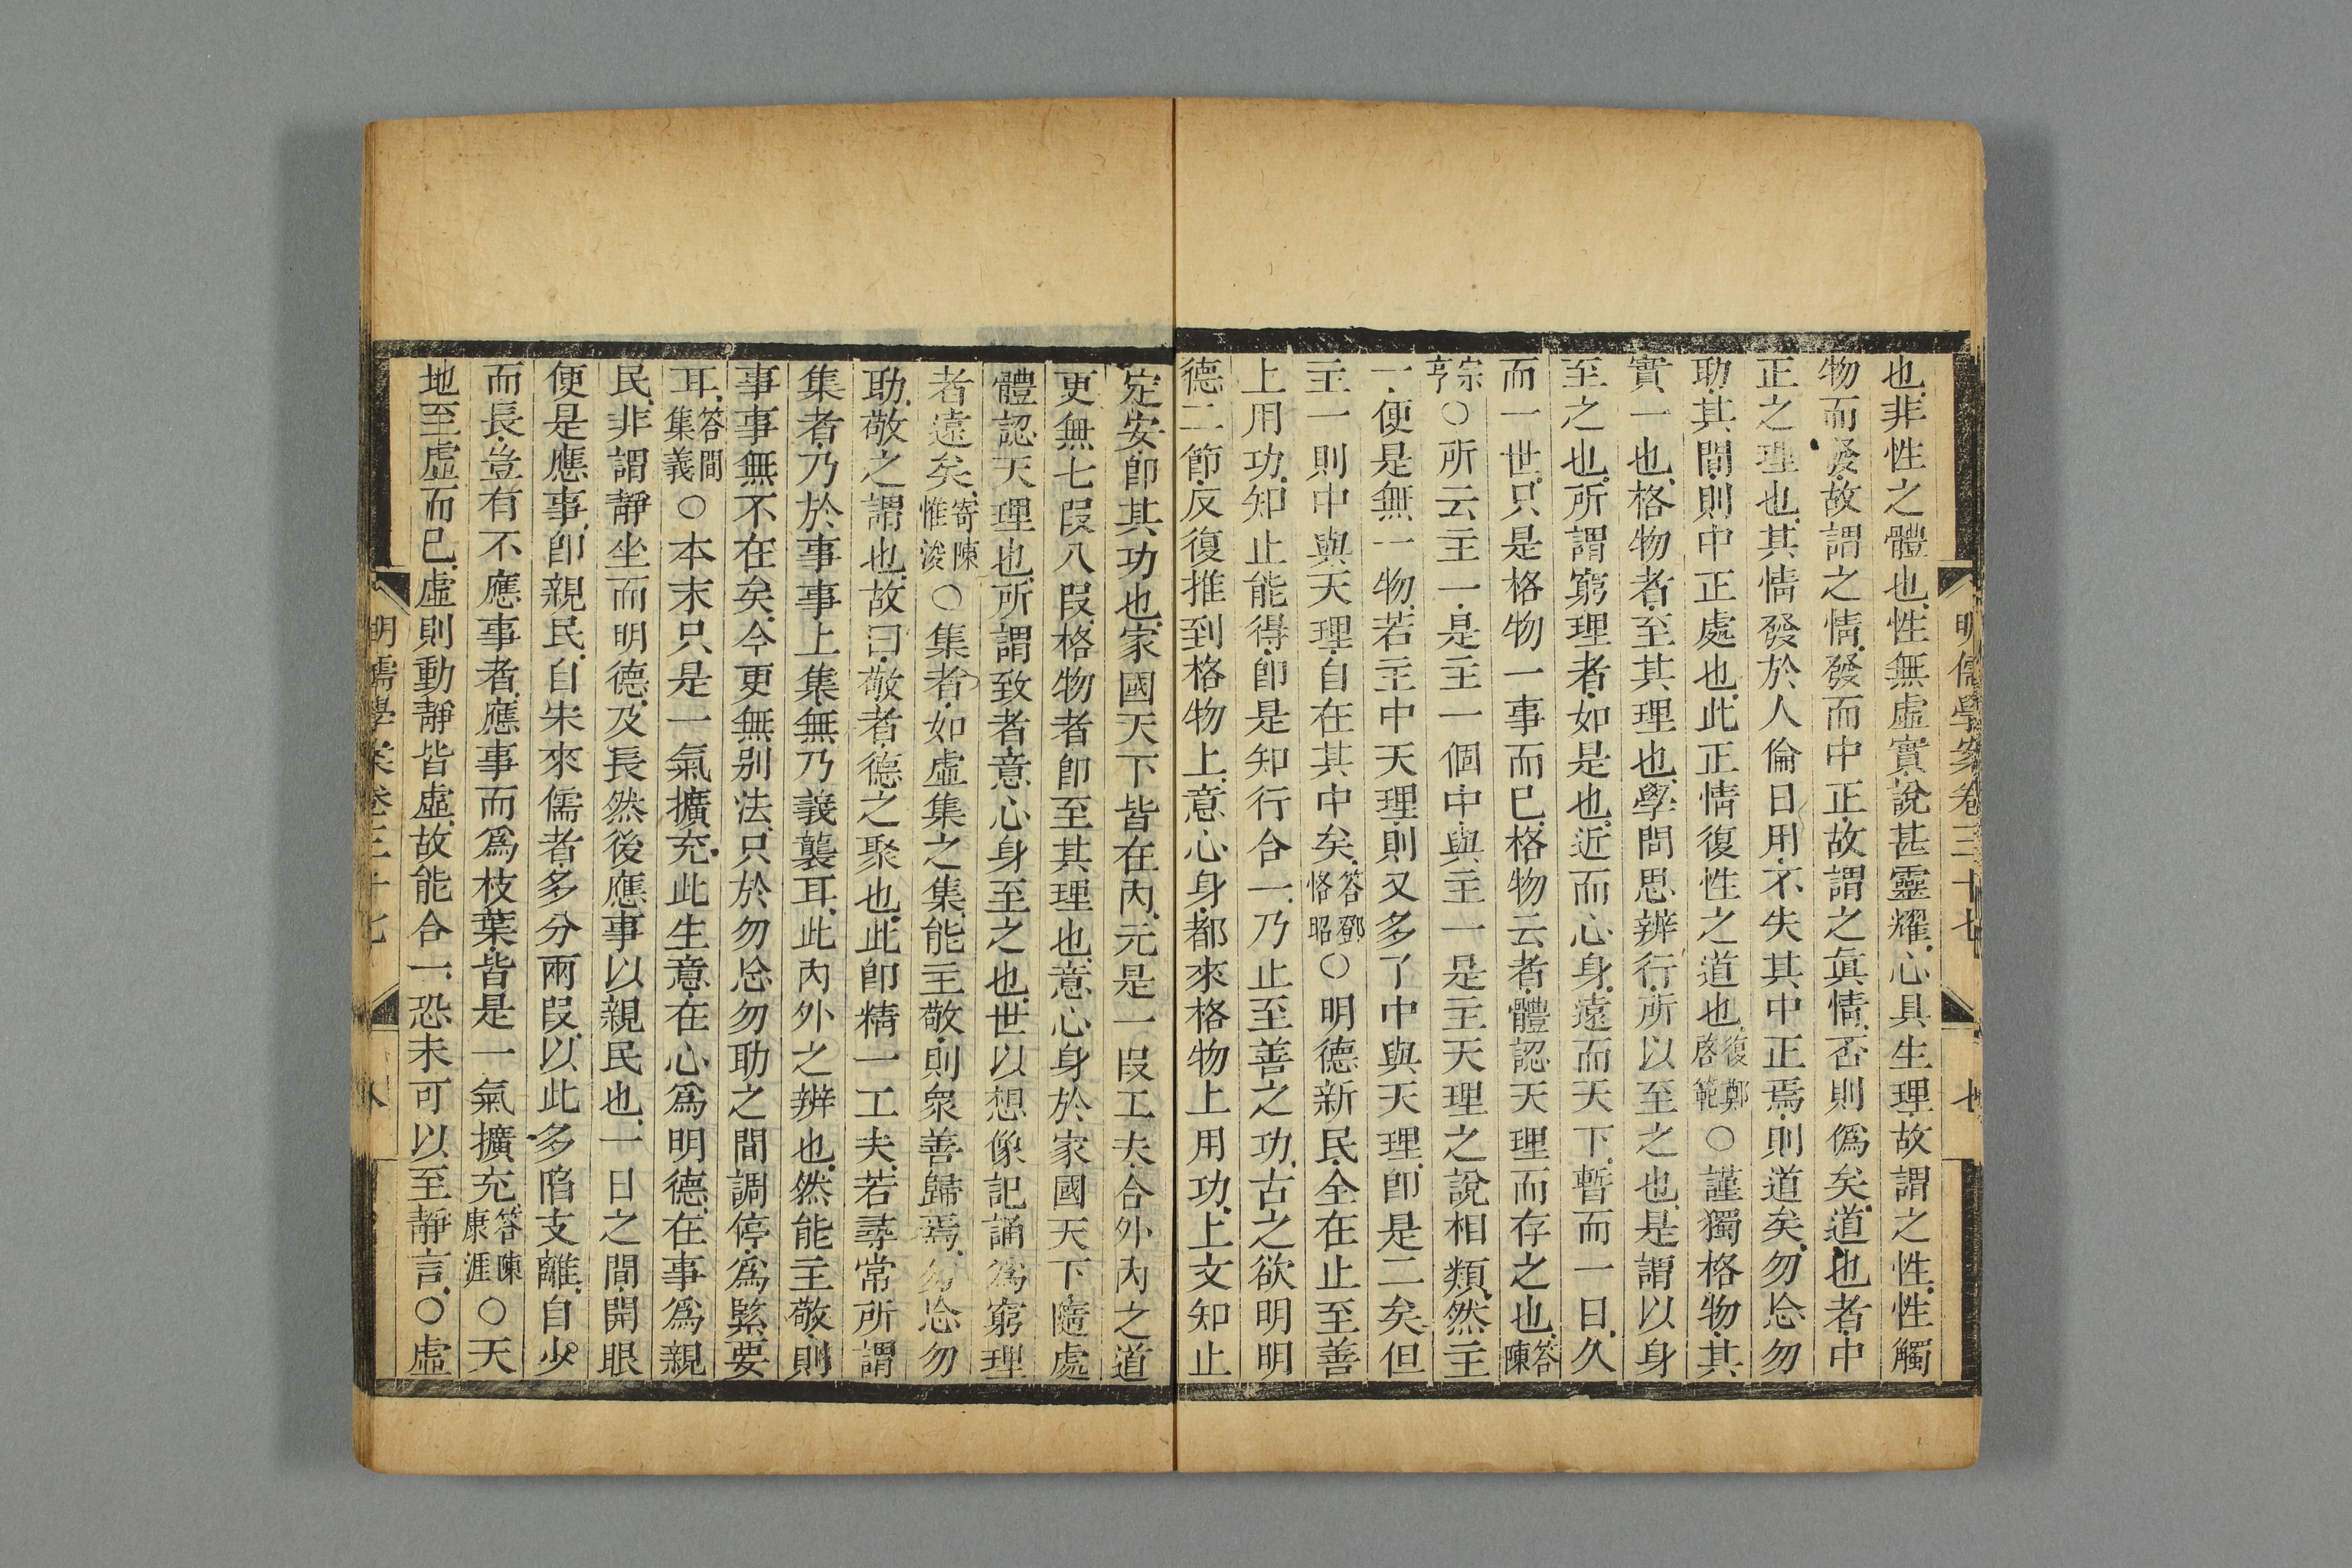 明儒學案卷三十七
七
也非性之體也性無虛實說甚靈耀心具生理故謂之性性觸
物而發故謂之情發而中正故謂之眞情否則僞矣道也者中
正之理也其情發於人倫日用不失其中正焉則道矣勿忘勿
助其間則中正處也此正情復性之道也復鄭啓範○謹獨格物其
實一也格物者至其理也學問思辨行所以至之也是謂以身
至之也所謂窮理者如是也近而心身遠而天下暫而一日久
而一世只是格物一事而已格物云者體認天理而存之也答陳
宗亨○所云主一是主一個中與主一是主天理之說相類然主
一便是無一物若主中天理則又多了中與天理卽是二矣但
主一則中與天理自在其中矣答鄧恪昭○明德新民全在止至善
上用功知止能得卽是知行合一乃止至善之功古之欲明明
德二節反復推到格物上意心身都來格物上用功上文知止
定安卽其功也家國天下皆在內元是一段工夫合外內之道
更無七段八段格物者卽至其理也意心身於家國天下隨處
體認天理也所謂致者意心身至之也世以想像記誦爲窮理
者遠矣寄陳惟浚○集者如虛集之集能主敬則衆善歸焉勿忘勿
助敬之謂也故曰敬者德之聚也此卽精一工夫若尋常所謂
集者乃於事事上集無乃義襲耳此內外之辨也然能主敬則
事事無不在矣今更無别法只於勿忘勿助之間調停爲緊要
耳答問集義○本末只是一氣擴充此生意在心爲明德在事爲親
民非謂靜坐而明德及長然後應事以親民也一日之間開眼
便是應事卽親民自宋來儒者多分兩段以此多陷支離自少
而長豈有不應事者應事而爲枝葉皆是一氣擴充答陳康涯○天
地至虛而已虛則動靜皆虛故能合一恐未可以至靜言○虛
明儒學案卷三十七
八